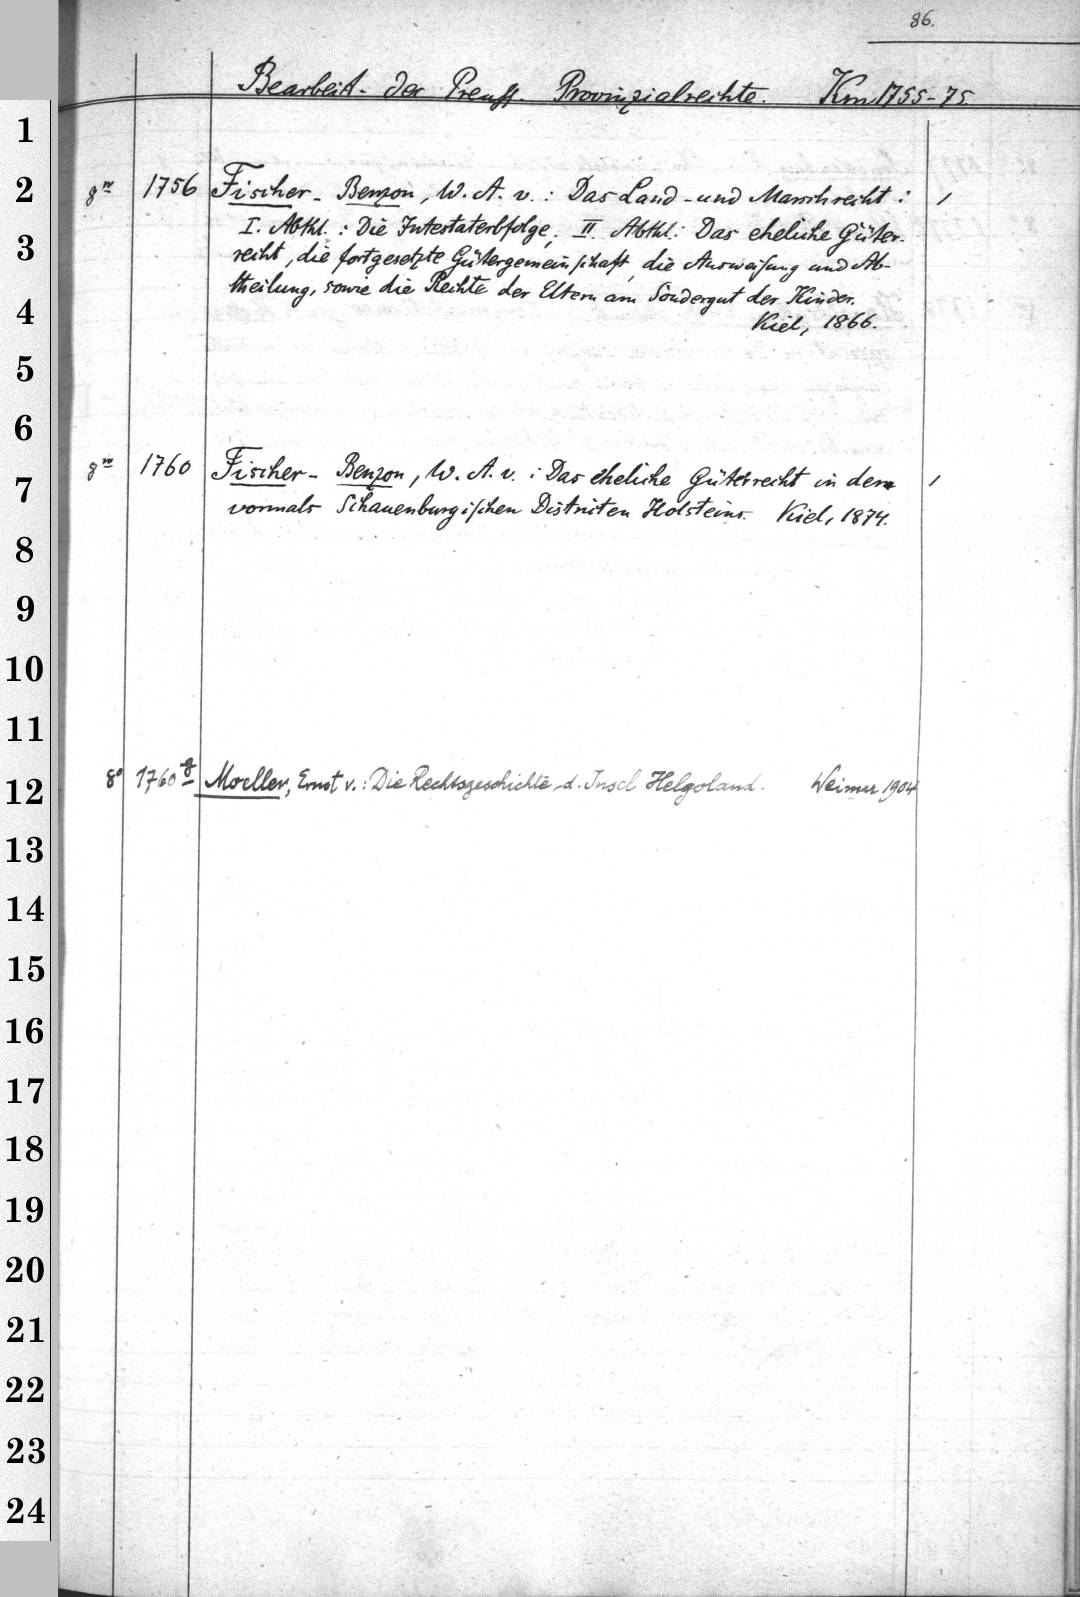 86.
Bearbeit. der Preuß. Provinzialrechte. Km 1755-75
8º 1756 Fischer-Benzon, W. A. v. : Das Land- und Marschrecht :
I. Abthl. : Die Intestaterbfolge, II. Abthl: Das eheliche Güter-
recht, die fortgesetzte Gütergemeinschaft, die Ausweisung und Ab-
theilung, sowie die Rechte der Eltern am Sondergut der Kinder.
Kiel, 1866.
8º 1760 Fischer-Benzon, W. A. v. : Das eheliche Güterrecht in den
vormals Schauenburgischen Distrikten Holsteins. Kiel, 1874.
8º 1760 g Moeller, Ernst v. : Die Rechtsgeschichte d. Insel Helgoland. Weimar 1904
1
2
3
4
5
6
7
8
9
10
11
12
13
14
15
16
17
18
19
20
21
22
23
24